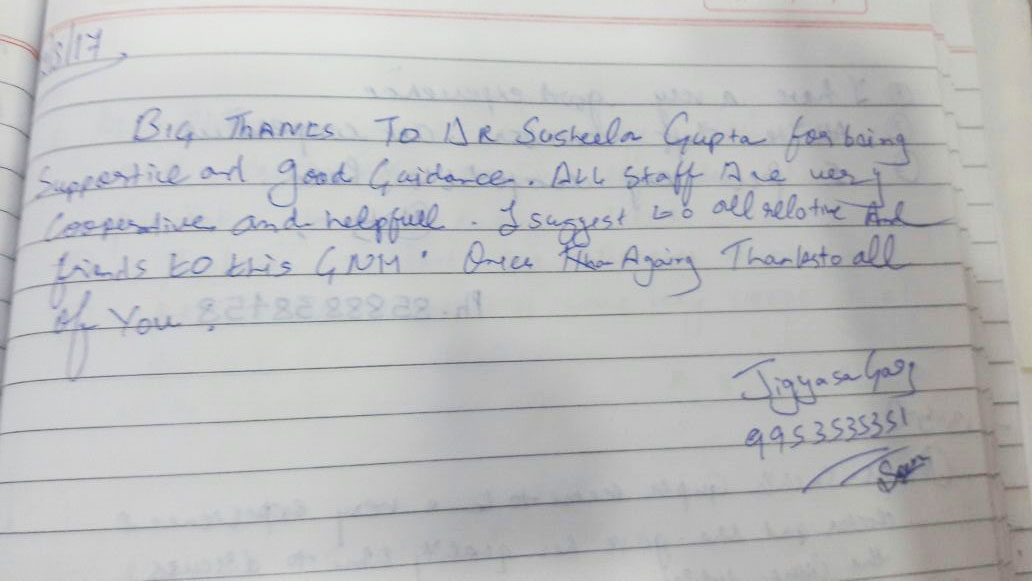 5/17,
BIG THANKS TO DR Susheela Gupta for being
Supportive and good Guidance. ALL Staff Are very
Cooperative and helpfull. I suggest to all relative And
friends to this GNH. Once Again Thanks to all
of You.
Jigyasa Garg
9953535351